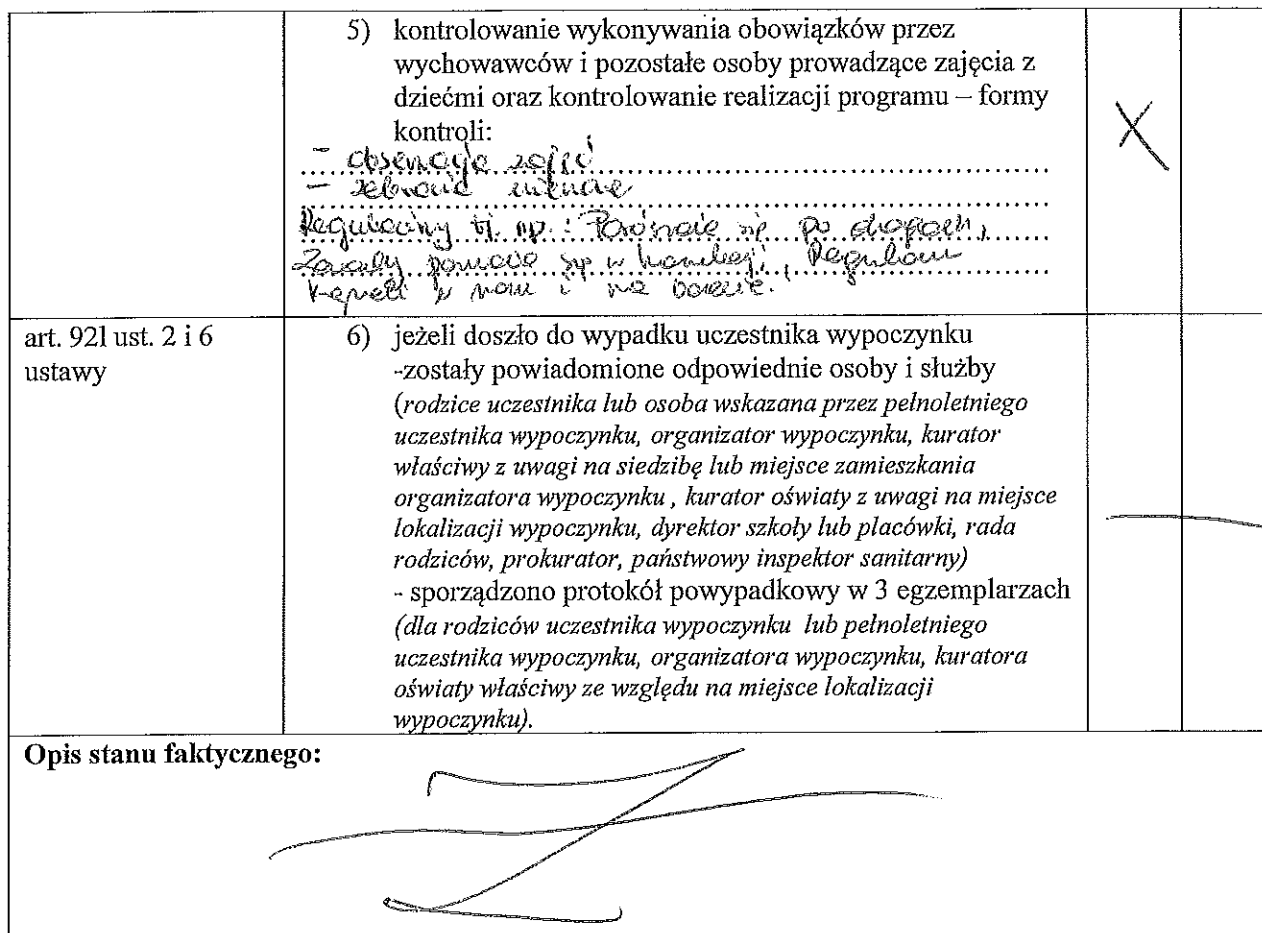 5) kontrolowanie wykonywania obowiązków przez
wychowawców i pozostałe osoby prowadzące zajęcia z
dziećmi oraz kontrolowanie realizacji programu – formy
kontroli:
- obserwacja zajęć
- zebrania
Regulaminy tj. np.: Poruszanie się po drogach,
Zasady
i na
art. 92l ust. 2 i 6
ustawy
6) jeżeli doszło do wypadku uczestnika wypoczynku
-zostały powiadomione odpowiednie osoby i służby
(rodzice uczestnika lub osoba wskazana przez pełnoletniego
uczestnika wypoczynku, organizator wypoczynku, kurator
właściwy z uwagi na siedzibę lub miejsce zamieszkania
organizatora wypoczynku , kurator oświaty z uwagi na miejsce
lokalizacji wypoczynku, dyrektor szkoły lub placówki, rada
rodziców, prokurator, państwowy inspektor sanitarny)
- sporządzono protokół powypadkowy w 3 egzemplarzach
(dla rodziców uczestnika wypoczynku lub pełnoletniego
uczestnika wypoczynku, organizatora wypoczynku, kuratora
oświaty właściwy ze względu na miejsce lokalizacji
wypoczynku).
Opis stanu faktycznego: